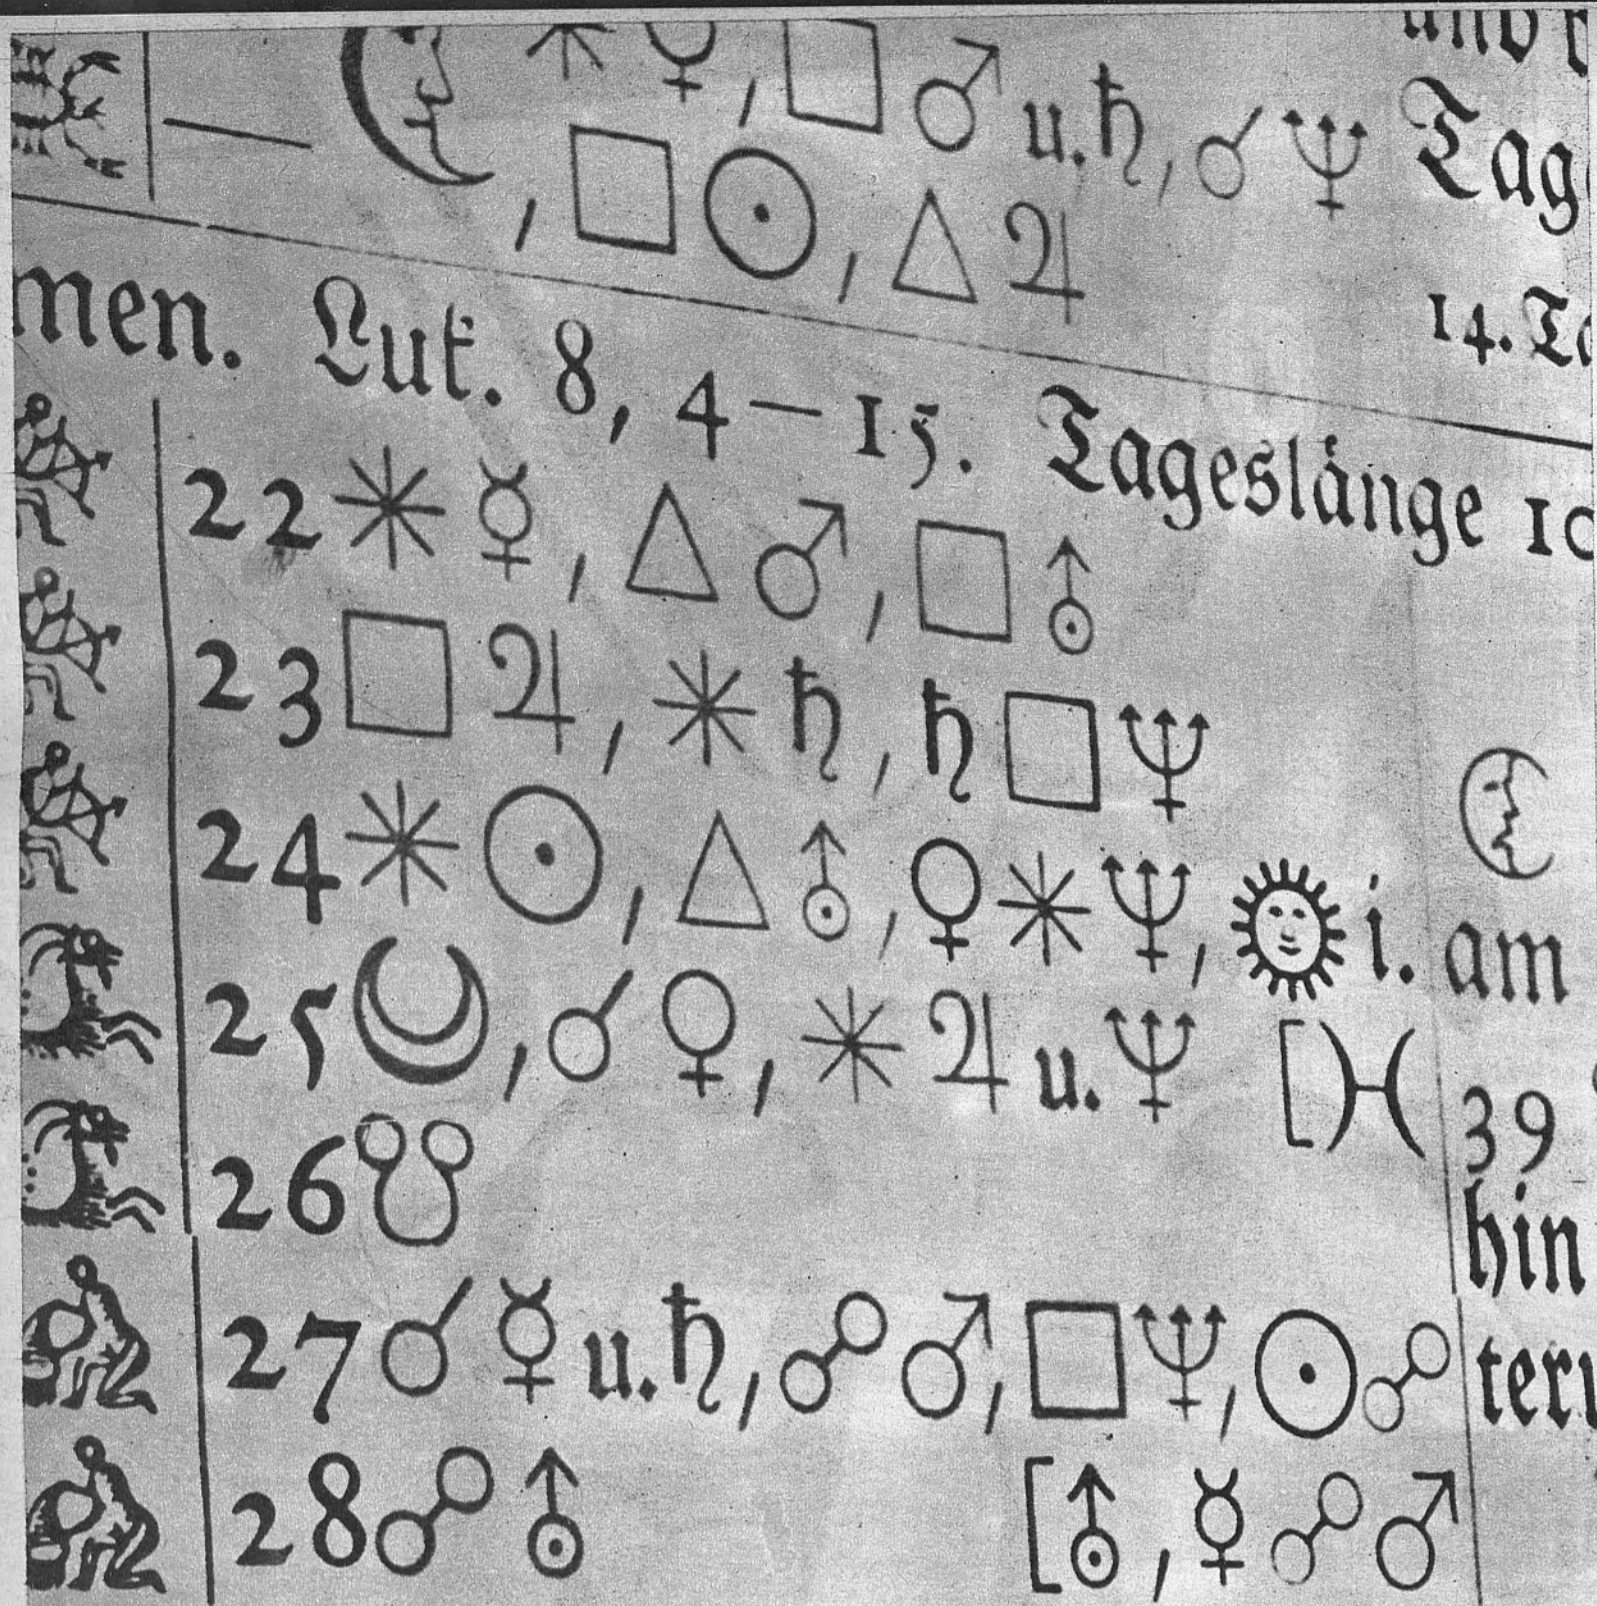 ☾ ⚹ ☿, □ ♂ u. ♄, ☌ ♆
, □ ☉, △ ♃
men. Luk. 8, 4—15. Tageslänge 10
14.
22 ⚹ ☿, △ ♂, □ ⛢
23 □ ♃, ⚹ ♄, ♄ □ ♆
24 ⚹ ☉, △ ⛢, ♀ ⚹ ♆, ☀ i. am
25 ☾, ☌ ♀, ⚹ ♃ u. ♆ [♓ 39
26 ☋ hin
27 ☌ ☿ u. ♄, ☍ ♂, □ ♆, ☉ ☍
28 ☍ ⛢ [⛢, ☿ ☍ ♂